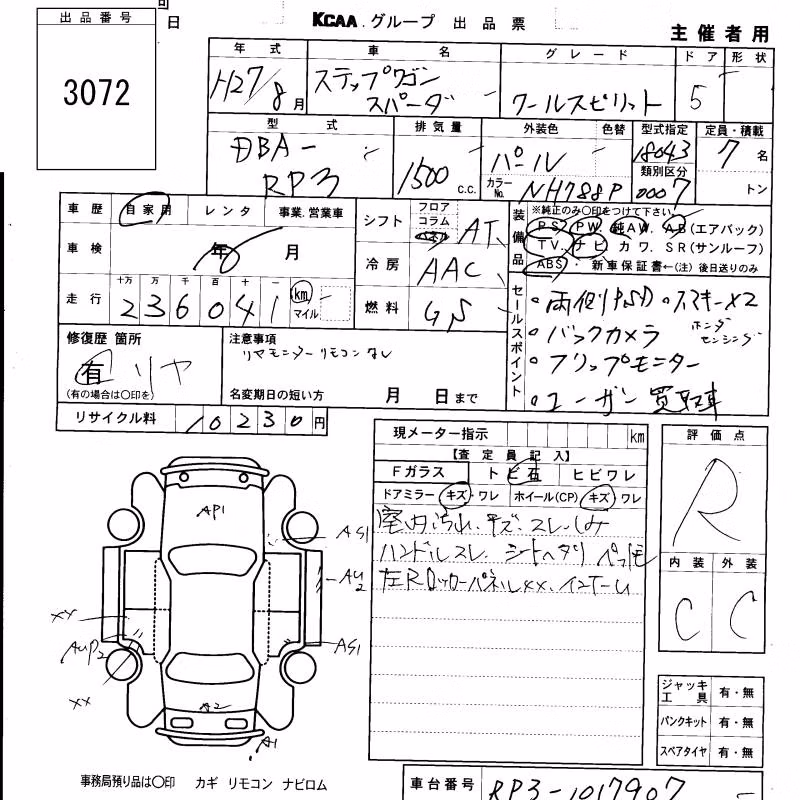 出品番号
3072
日
KCAA グループ 出品票
主催者用
年式 車名 グレード ドア 形状
H27/8月 ステップワゴン スパーダ クールスピリット 5
型式 排気量 外装色 色替 型式指定 定員・積載
DBA- RP3 1500 c.c. パール 18043 7名
類別区分
カラーNo. NH788P 0007 トン
車歴 自家用 レンタ 事業.営業車
車検 年 月
十万 万 千 百 十 一
走行 236041 km マイル
シフト フロア コラム パネル AT
冷房 AAC
燃料 GS
装備品 ※純正のみ〇印をつけて下さい
PS. PW. 純AW. AB(エアバック)
TV. ナビ カワ. SR(サンルーフ)
ABS・ 新車保証書←(注)後日送りのみ
セールスポイント
・両側PSD ・スマキーX2
・バックカメラ ホンダセンシング
・フリップモニター
・ユーザー買取車
修復歴 箇所
有 リヤ
(有の場合は〇印を)
注意事項
リヤモニターリモコンなし
名変期日の短い方 月 日まで
リサイクル料 10230円
現メーター指示 km
【査定員記入】
Fガラス トビ石 ヒビワレ
ドアミラー キズ・ワレ ホイール(CP) キズ・ワレ
室内汚れ.キズ.スレ.シミ
ハンドルスレ. シートヘタリ ペット毛
左Rロッカーパネルxx.インナーU
評価点
R
内装 外装
C C
AP1
AS1
AU2
XX
AUP2
AS1
XX
A2
A1
ジャッキ工具 有・無
パンクキット 有・無
スペアタイヤ 有・無
事務局預り品は〇印 カギ リモコン ナビロム
車台番号 RP3-1017907